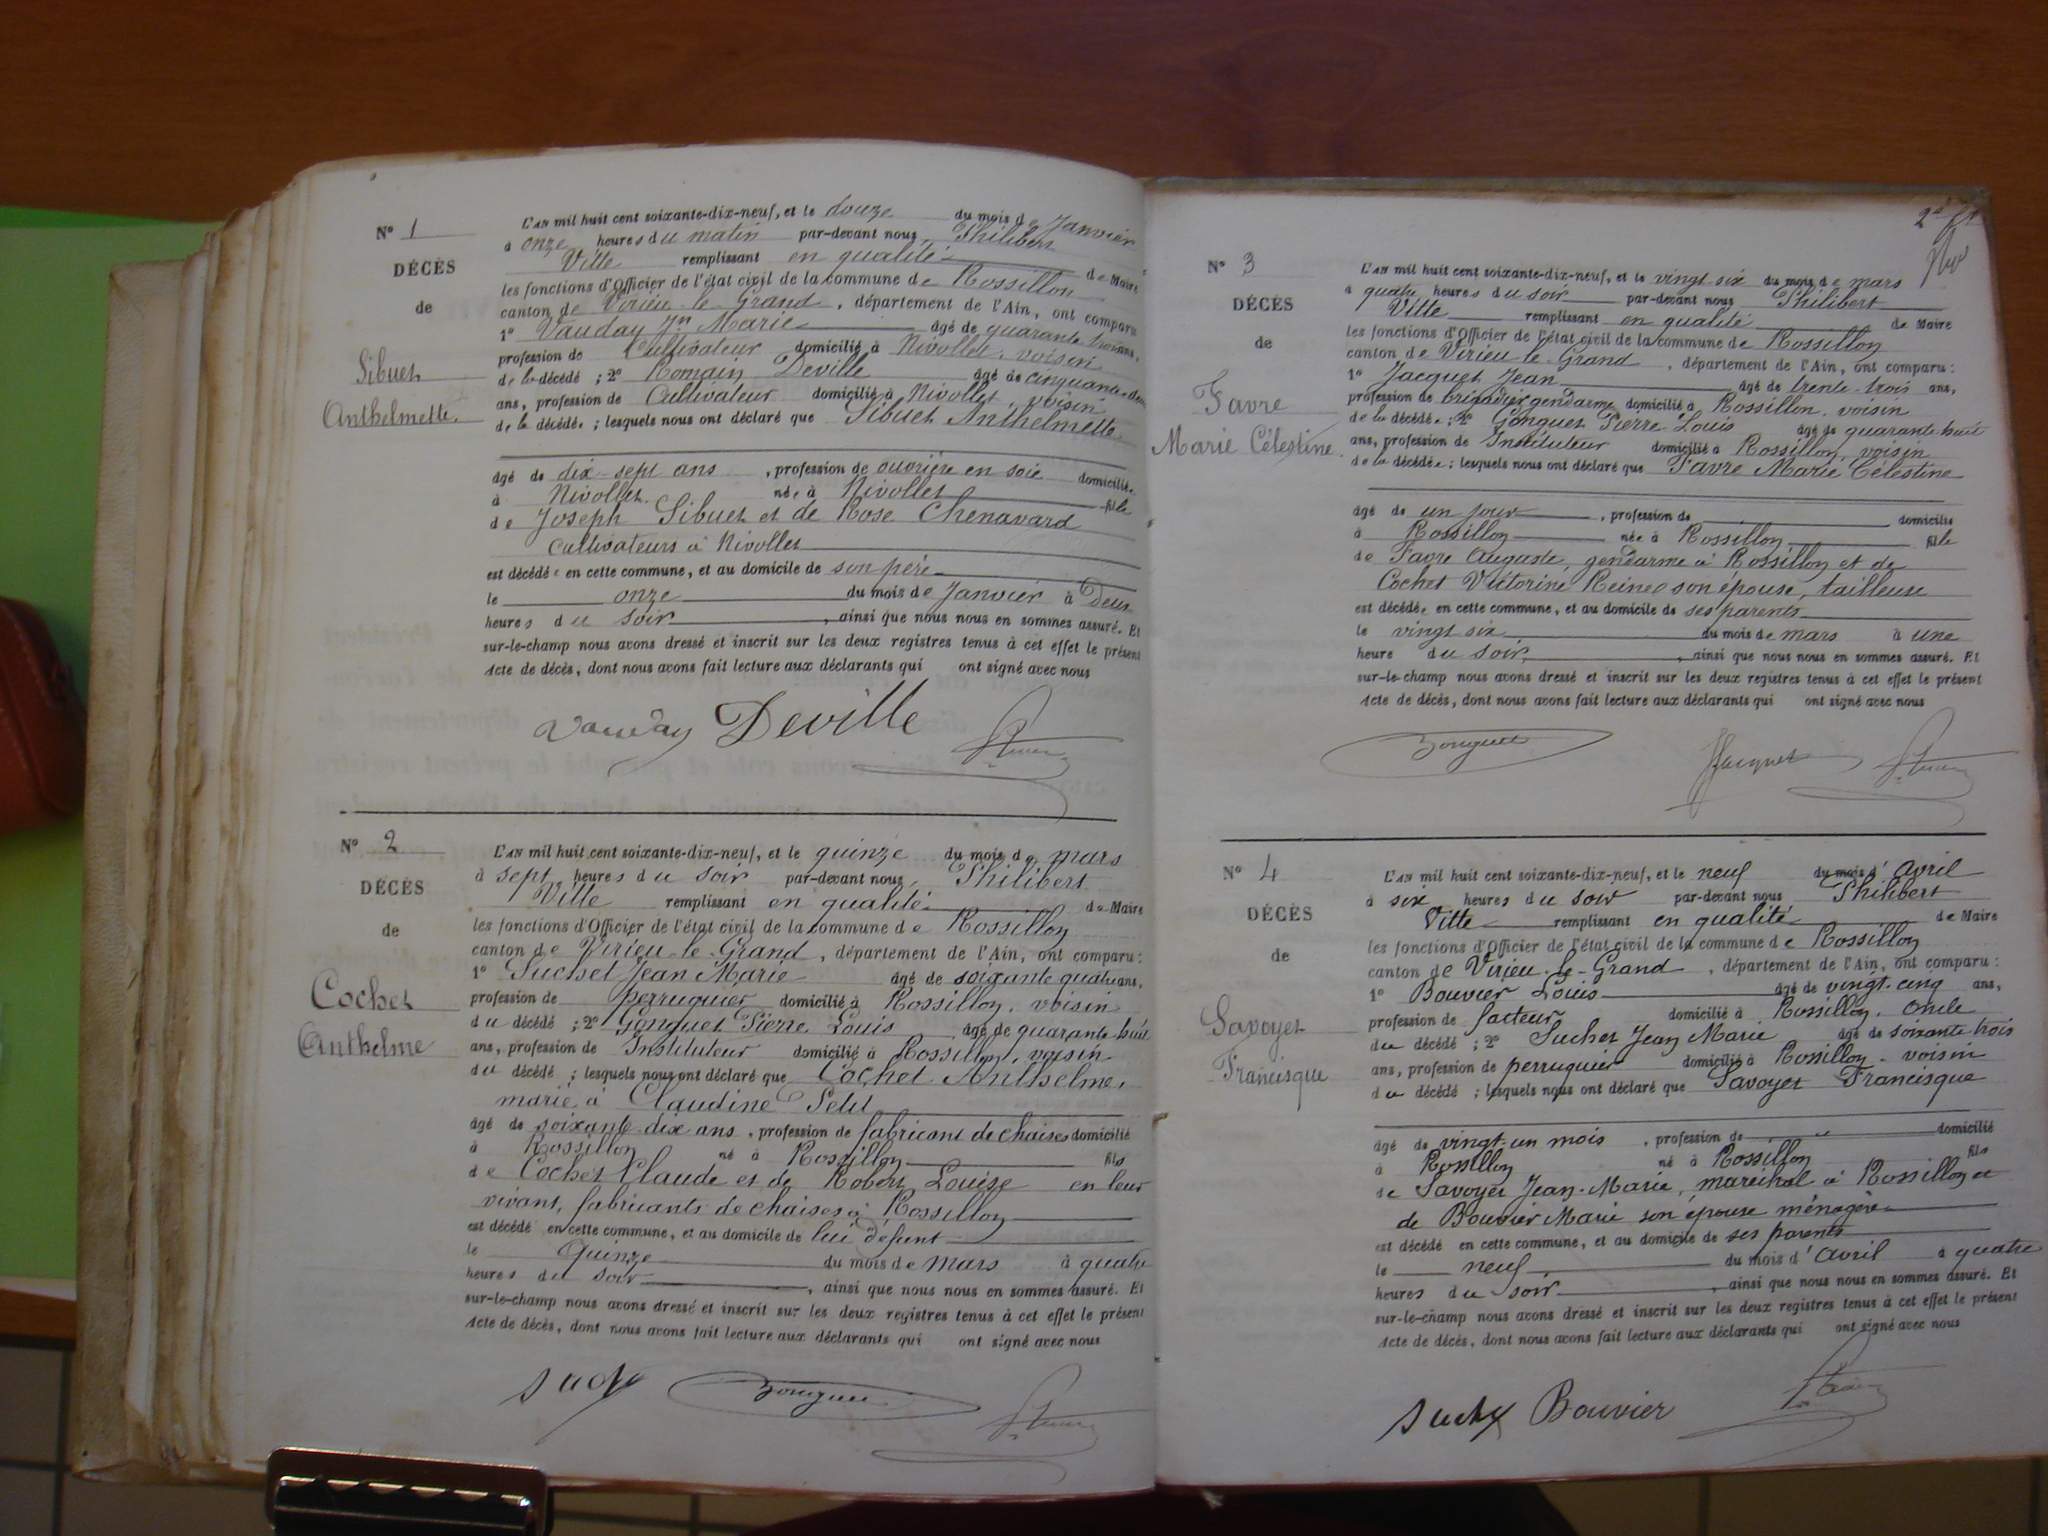 N° 1
DÉCÈS
de
Sibuet
Anthelmette
L'AN mil huit cent soixante-dix-neuf, et le douze du mois de Janvier
à onze heures du matin par-devant nous, Philibert
Ville remplissant en qualité de Maire
les fonctions d'Officier de l'état civil de la commune de Rossillon
canton de Virieu-le-Grand, département de l'Ain, ont comparu
1° Vauday Jn Marie âgé de quarante trois ans,
profession de Cultivateur domicilié à Nivollet, voisin
de la décédée ; 2° Romain Deville âgé de cinquante-deux
ans, profession de Cultivateur domicilié à Nivollet, voisin
de la décédée ; lesquels nous ont déclaré que Sibuet Anthelmette,
âgé de dix-sept ans, profession de ouvrière en soie domiciliée
à Nivollet née à Nivollet fille
de Joseph Sibuet et de Rose Chenavard
cultivateurs à Nivollet
est décédée en cette commune, et au domicile de son père
le onze du mois de Janvier à Deux
heures du soir, ainsi que nous nous en sommes assuré. Et
sur-le-champ nous avons dressé et inscrit sur les deux registres tenus à cet effet le présent
Acte de décès, dont nous avons fait lecture aux déclarants qui ont signé avec nous
Vauday Deville
N° 2
DÉCÈS
de
Cochet
Anthelme
L'AN mil huit cent soixante-dix-neuf, et le quinze du mois de mars
à sept heures du soir par-devant nous, Philibert
Ville remplissant en qualité de Maire
les fonctions d'Officier de l'état civil de la commune de Rossillon
canton de Virieu-le-Grand, département de l'Ain, ont comparu :
1° Suchet Jean Marie âgé de soixante quatre ans,
profession de perruquier domicilié à Rossillon, voisin
du décédé ; 2° Gonguet Pierre Louis âgé de quarante-huit
ans, profession de Instituteur domicilié à Rossillon, voisin
du décédé ; lesquels nous ont déclaré que Cochet Anthelme,
marié à Claudine Petit
âgé de soixante-dix ans, profession de fabricant de chaises domicilié
à Rossillon né à Rossillon fils
de Cochet Claude et de Robert Louise en leur
vivant, fabricants de chaises à Rossillon
est décédé en cette commune, et au domicile de lui défunt
le Quinze du mois de mars à quatre
heures du soir, ainsi que nous nous en sommes assuré. Et
sur-le-champ nous avons dressé et inscrit sur les deux registres tenus à cet effet le présent
Acte de décès, dont nous avons fait lecture aux déclarants qui ont signé avec nous
2e ft
N° 3
DÉCÈS
de
Favre
Marie Célestine
L'AN mil huit cent soixante-dix-neuf, et le vingt six du mois de mars
à quatre heures du soir par-devant nous Philibert
Ville remplissant en qualité de Maire
les fonctions d'Officier de l'état civil de la commune de Rossillon
canton de Virieu-le-Grand, département de l'Ain, ont comparu :
1° Jacquet Jean âgé de trente-trois ans,
profession de brigadier gendarme domicilié à Rossillon, voisin
de la décédée ; 2° Gonguet Pierre Louis âgé de quarante-huit
ans, profession de Instituteur domicilié à Rossillon, voisin
de la décédée ; lesquels nous ont déclaré que Favre Marie Célestine
âgé de un jour, profession de domicilié
à Rossillon née à Rossillon fille
de Favre Auguste, gendarme à Rossillon et de
Cochet Victorine Reine son épouse, tailleuse
est décédée en cette commune, et au domicile de ses parents
le vingt six du mois de mars à une
heure du soir, ainsi que nous nous en sommes assuré. Et
sur-le-champ nous avons dressé et inscrit sur les deux registres tenus à cet effet le présent
Acte de décès, dont nous avons fait lecture aux déclarants qui ont signé avec nous
Jacquet
N° 4
DÉCÈS
de
Savoyet
Francisque
L'AN mil huit cent soixante-dix-neuf, et le neuf du mois d'avril
à six heures du soir par-devant nous Philibert
Ville remplissant en qualité de Maire
les fonctions d'Officier de l'état civil de la commune de Rossillon
canton de Virieu-le-Grand, département de l'Ain, ont comparu :
1° Bouvier Louis âgé de vingt-cinq ans,
profession de facteur domicilié à Rossillon, oncle
du décédé ; 2° Suchet Jean Marie âgé de soixante trois
ans, profession de perruquier domicilié à Rossillon - voisin
du décédé ; lesquels nous ont déclaré que Savoyet Francisque
âgé de vingt-un mois, profession de domicilié
à Rossillon né à Rossillon fils
de Savoyet Jean-Marie, maréchal à Rossillon et
de Bouvier Marie son épouse ménagère
est décédé en cette commune, et au domicile de ses parents
le neuf du mois d'avril à quatre
heures du soir, ainsi que nous nous en sommes assuré. Et
sur-le-champ nous avons dressé et inscrit sur les deux registres tenus à cet effet le présent
Acte de décès, dont nous avons fait lecture aux déclarants qui ont signé avec nous
Suchet Bouvier